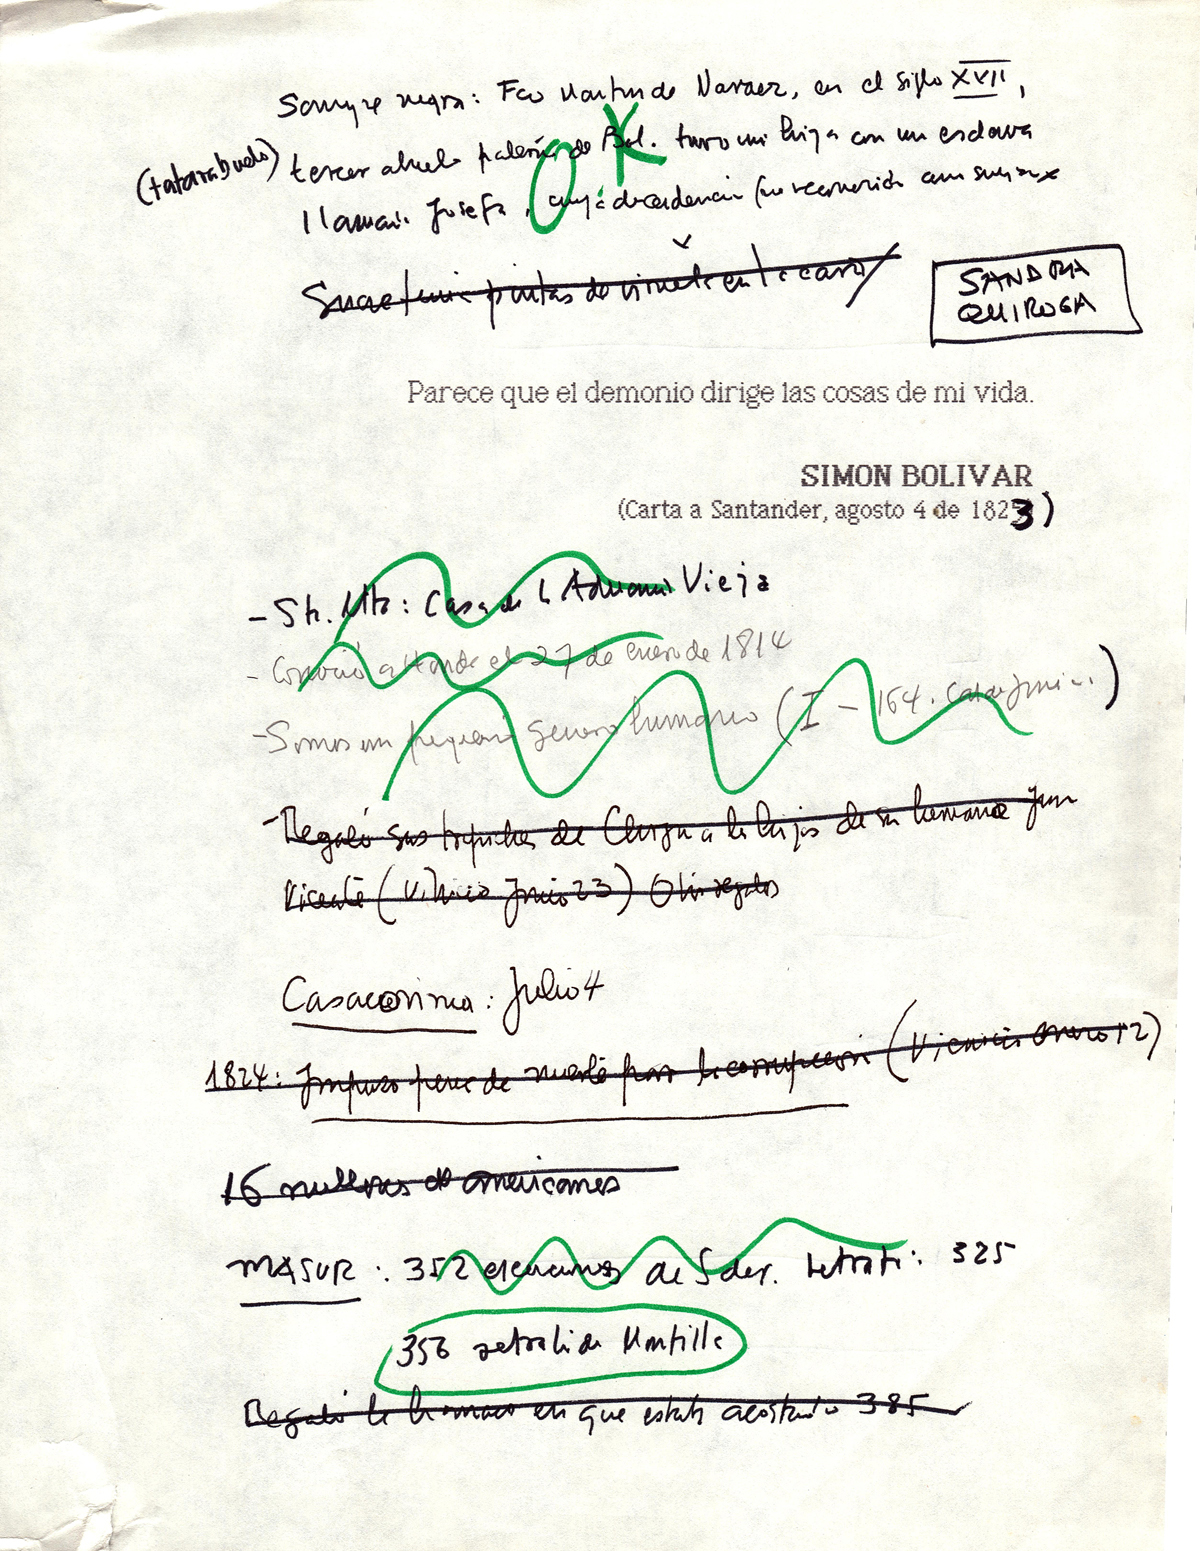 Sangre negra: Fco Martin de Narvaez, en el siglo XVII,
(tatarabuelo) tercer abuelo paterno de Bol. tuvo una hija con un esclava
llamada Josefa, cuya descendencia
OK
Sucre tenía pintas de viruela en la cara
SANDRA
QUIROGA
Parece que el demonio dirige las cosas de mi vida.
SIMON BOLIVAR
(Carta a Santander, agosto 4 de 1823)
- Sta. Mta: Casa de la Aduana Vieja
- Conoció a el 27 de enero de 1814
- Somos un pequeño género humano (I - 164.
- Regaló sus de a la hijos de su hermano Juan
Vicente ( junio 23) Otros regalos
Casacoima: Julio 4
1824: Impuso pena de muerte para la corrupción ( enero 12)
16 millones de americanos
MASUR: 352 ejecuciones de Sder. retrato: 325
356 retrato de Montilla
Regaló la hamaca en que estaba acostado 385